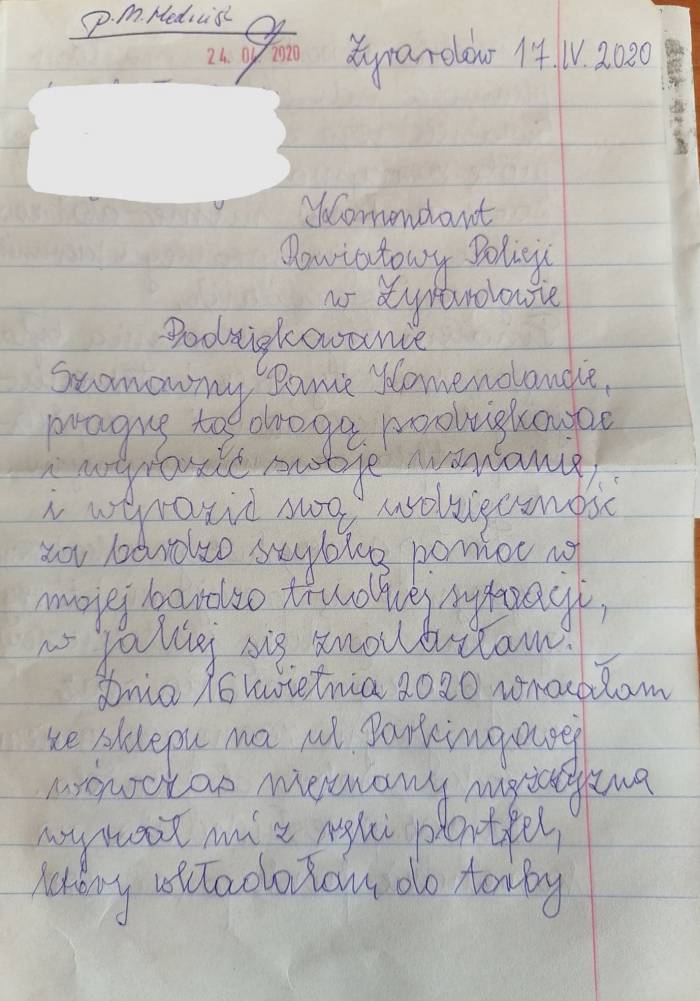 24. 04. 2020
Żyrardów 17.IV.2020
Komendant
Powiatowy Policji
w Żyrardowie
Podziękowanie
Szanowny Panie Komendancie,
pragnę tą drogą podziękować
i wyrazić swoje uznanie,
i wyrazić swą wdzięczność
za bardzo szybką pomoc w
mojej bardzo trudnej sytuacji,
w jakiej się znalazłam.
Dnia 16 kwietnia 2020 wracałam
ze sklepu na ul. Parkingowej
wówczas nieznany mężczyzna
wyrwał mi z ręki portfel,
który wkładałam do torby